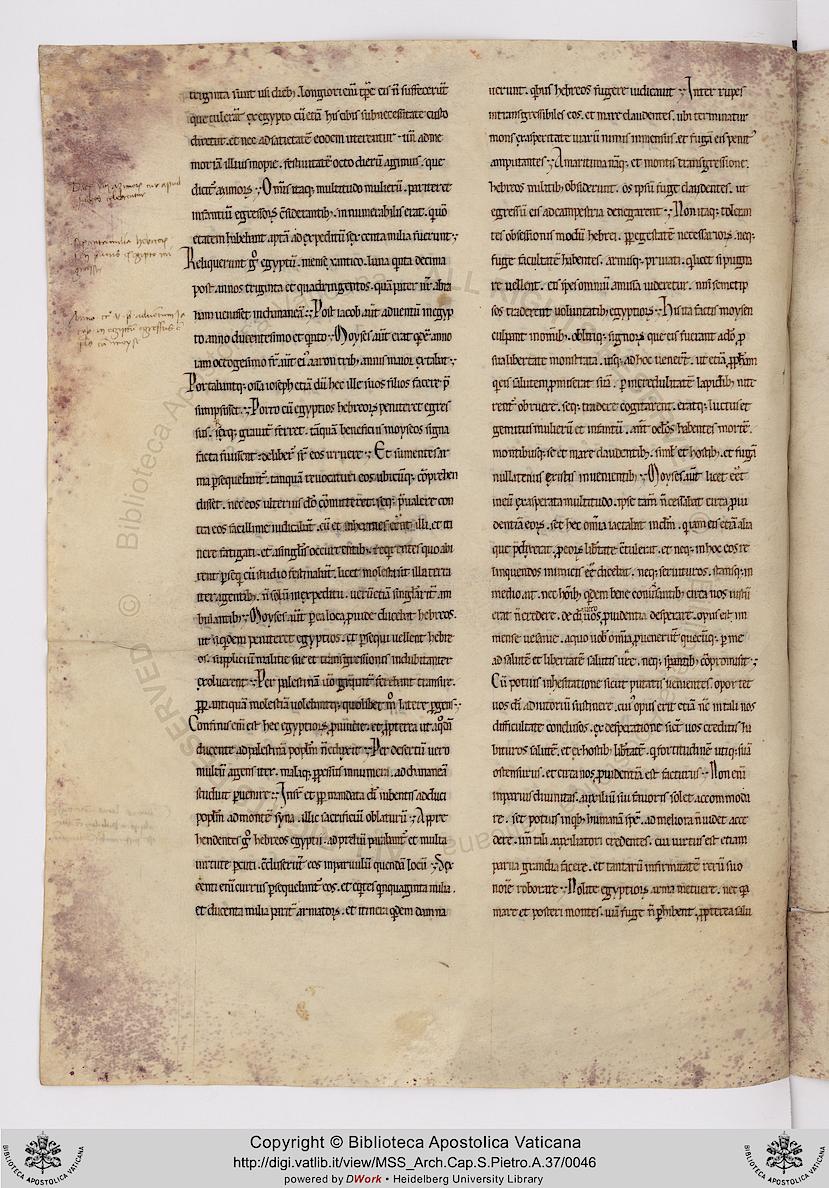 triginta sunt usi dieb; longiori eni tpe eis n suffecerunt
que tulerat ex egypto cu etia his cibis sub necessitate custo
direntur. et nec ad satietate eodem uterentur. un ad me
moria illius inopie. festiuitate octo dieru agimus. que
dicit azimoru. Omnis itaq; multitudo mulieru. pariter et
infantiu egressoru c̄siderantib; innumerabilis erat. quor
etatem habebant apta ad expeditu sexcenta milia fuerunt.
Reliquerunt g egyptu. mense xantico. luna quinta decima
post annos triginta et quadringentos. qua pater nr abra
ham uenisset in chananea. Post iacob aut aduentu in egyp
to. anno ducentesimo et quinto. Moyses aut erat quidem anno
iam octogesimo. fr aut ei aaron trib; annis maior extabat.
Portabantq; ossa ioseph etia du hec ille suos filios facere p
sumpsisset. Porro cu egyptios hebreos peniteret egres
sus. rexq; grauit ferret. taqua beneficiis moyseos signa
facta fuissent. deliberat st eos irruere. Et sumentes ar
ma psequebant. tanquam reuocaturi eos ubicuq; cophen
dissent. nec eos ulterius do comitteret. seq; pualere con
tra eos facillime iudicabant. cu et inhermes eent illi. et iti
nere fatigati. et a singlis occurrentib; requirentes quo abi
rent pseq cu studio festinabant. licet molesta sit illa terra
iter agentib; n solu in expeditu. ueru etia singularit am
bulantib; Moyses aut p ea loca puide ducebat hebreos.
ut si qdem peniteret egyptios. et psequi uellent hebre
os. suppliciu malitie sue et transgressionis indubitanter
exoluerent. Per palestina uo gentem fecerunt transire.
ppt antiqua molestia uolebantq; quolibet mo latere pgens.
Confinis eni est hec egyptioru puincie. et ppterea ut a quida
ducente ad palestina poplm n duxit. Per desertu uero
multu agens iter. malaq; ppessus innumera. ad chananea
studuit peruenire. Insup et ppt mandata di iubentis adduci
poplm ad monte syna. illic sacrificiu oblaturu. Appre
hendentes g hebreos egyptii. ad preliu parabant et multa
uirtute pcuti. c̄cluserunt eos in paruulu quenda locu. Sex
centi eni currus psequebant eos. et eqtes quinquaginta milia.
et ducenta milia parit armatoru. et itinera qdem damna
uerunt. quibus hebreos fugere iudicauit. Inter rupes
intransgressibiles eos. et mare claudentes. ubi terminatur
mons exasperitate uiaru nimis inmensus. et fuga eis penit
amputantes. A maritima naq; et montis transgressione.
hebreos multitib; obsiderunt. os ipsu fuge claudentes. ut
egressu eis ad campestria denegarent. Non itaq; toleran
tes obsessionis modu hebrei. pp egestate necessarioru. neq;
fuge facultate habentes. armisq; priuati. q licet si pugna
re uellent. eu spes omniu amissa uideretur. nisi semet ip
sos traderent uoluntatib; egyptioru. His ita factis moysen
culpant in omib; oblitiq; signoru que eis fuerant a do. p
sua libertate monstrata. usq; ad hoc uenerunt. ut etia pphetam
q eis salutem pmiserat sua. p incredulitate lapidib; uel
rent obruere. seq; tradere cogitarent. eratq; luctus et
gemitus mulieru et infantu. ante oculos habentes morte.
montibusq; se et mare claudentib; simul et hostib; et fuga
nullatenus exinde inuenientib; Moyses aut licet eet
in eu exasperata multitudo. ipse tam n cessabat circa pui
dentia eoru. set hec omia iactabat in dm. qui iam eis etia alia
que pdixerat. p eoru libertate c̄tulerat. et neq; in hoc eos re
linquendos inimicis ee dicebat. neq; seruituros. stansq; in
medio. ait. nec hoib; qdem bene conuersantib; circa nos iustu
erat n credere. de di uero puidentia desperare. opus est in
mense uesanie. a quo nob omia puenerut quecuq; p me
ad salute et libertate salutis ure. neq; spantib; copromisit.
Cu potius in hesitatione sicut putatis uenientes. oportet
uos di adiutoriu sustinere. cui opus erit etia nc in tali nos
difficultate conclusos. ex desperatione sicut uos creditis ha
bituros salute. et ex hostib; libtate. q fortitudine utiq; sua
ostensurus. et circa nos puidentia est facturus. Non eni
in paruis diuinitas auxiliu sui fauoris solet accommoda
re. set potius in qb; humana spes. ad meliora n uidet acce
dere. un tali auxiliatori credentes. cui uirtus est etiam
parua grandia facere. et tantaru infirmitate reru suo
noie roborare. Nolite egyptioru arma metuere. nec qa
mare et posteri montes. uia fuge n phibent. ppterea salu
Copyright © Biblioteca Apostolica Vaticana
http://digi.vatlib.it/view/MSS_Arch.Cap.S.Pietro.A.37/0046
powered by DWork • Heidelberg University Library
BIBLIOTECA APOSTOLICA VATICANA
BIBLIOTECA APOSTOLICA VATICANA